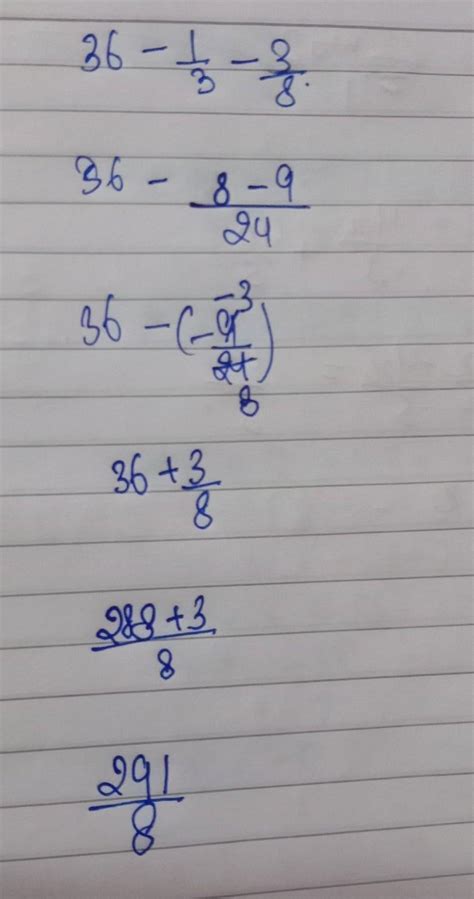 36 - 1/3 - 3/8.
36 - (8 - 9)/24
36 - (-9/24) -3 8
36 + 3/8
(288 + 3)/8
291/8